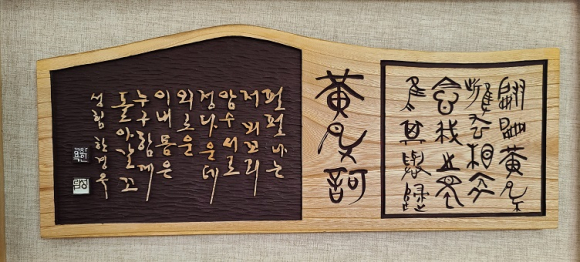 翩翩黃鳥
雌雄相依
念我之獨
誰其與歸
黃鳥訶
펄펄 나는
저 꾀꼬리
암수 서로
정다운데
외로운
이내 몸은
누구 함께
돌아갈꼬